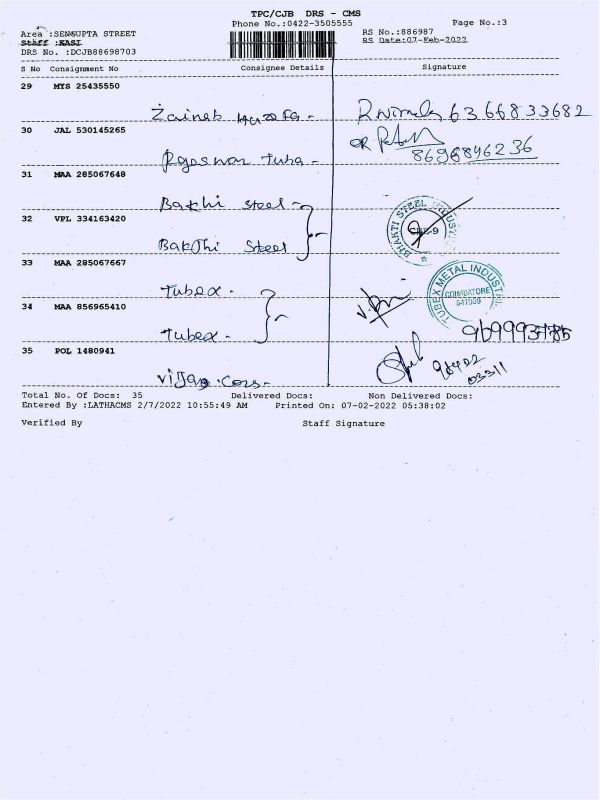 TPC/CJB DRS - CMS
Phone No.:0422-3505555
Page No.:3
Area :SENGUPTA STREET
RS No.:886987
Staff :KASI
RS Date:07-Feb-2022
DRS No. :DCJB88698703
S No Consignment No Consignee Details Signature
29 MYS 25435550
Zainab Huzefa - 6366833682
30 JAL 530145265
8696896236
31 MAA 285067648
Bakthi Steel
32 VPL 334163420
BHAKTI STEEL INDUSTRY
CBE-9
Bakthi Steel
33 MAA 285067667
Tubex -
TUBEX METAL INDUSTRIES
COIMBATORE
641009
34 MAA 856965410
Tubex -
35 POL 1480941
98422
03311
Vijay Cors -
Total No. Of Docs: 35 Delivered Docs: Non Delivered Docs:
Entered By :LATHACMS 2/7/2022 10:55:49 AM Printed On: 07-02-2022 05:38:02
Verified By Staff Signature